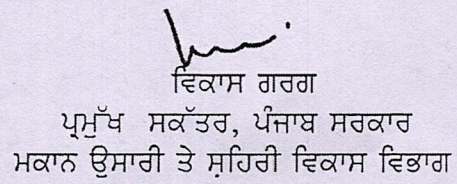 ਵਿਕਾਸ ਗਰਗ
ਪ੍ਰਮੁੱਖ ਸਕੱਤਰ, ਪੰਜਾਬ ਸਰਕਾਰ
ਮਕਾਨ ਉਸਾਰੀ ਤੇ ਸ਼ਹਿਰੀ ਵਿਕਾਸ ਵਿਭਾਗ